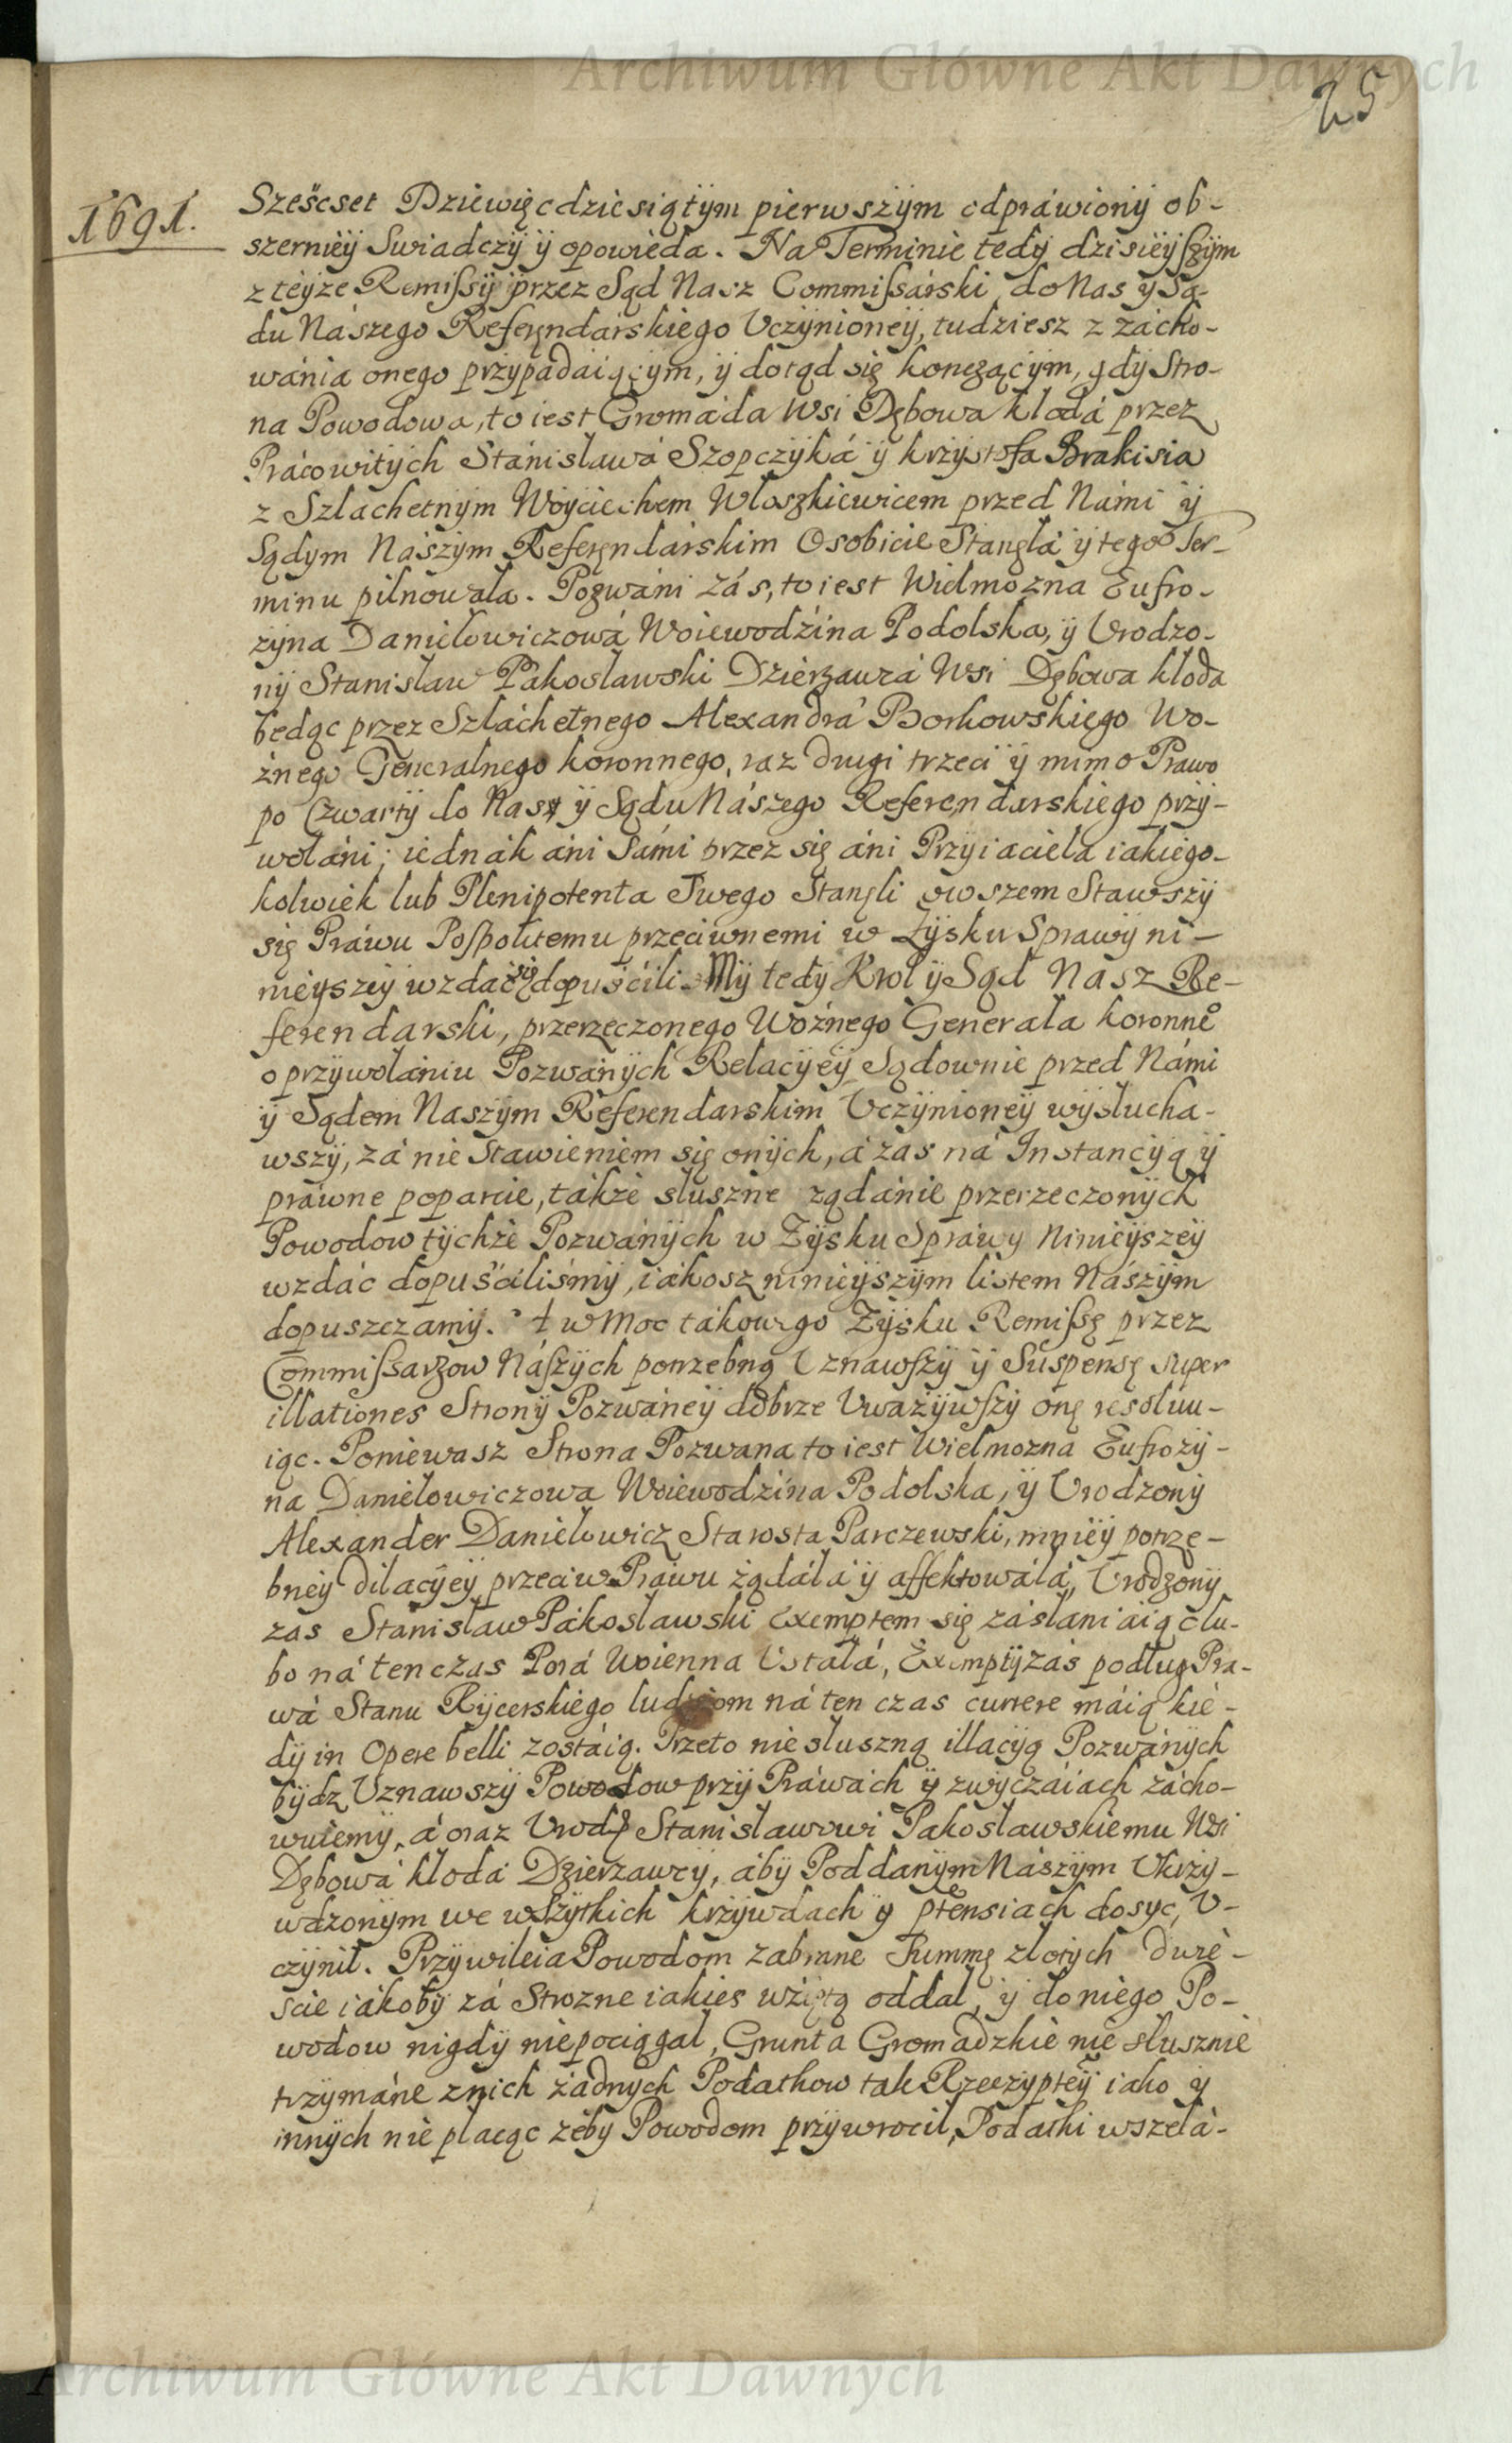 Archiwum Główne Akt Dawnych
25
1691.
Sześcset Dziewięcdziesiątÿm pierwszÿm odpráwionÿ ob-
szerniëÿ Swiadczÿ ÿ opowieda. Na Terminie tedÿ dzisieÿszÿm
z teÿże Remissÿi przez Sąd Nasz Commissárski do Nas ÿ Są-
du Nászego Referęndárskiego Vczÿnioneÿ, tudziesz z zácho-
wánia onego przÿpádaiącÿm, ÿ dotąd się kończącÿm, gdÿ Stro-
na Powodowa, to iest Gromáda Wsi Dębowa kłodá przez
Prácowitÿch Stánisławá Szopczÿká ÿ krzÿstofa Brakisia
z Szlachetnÿm Woÿciechem Włoszkiewicem przed Námi ÿ
Sądÿm Nászÿm Referęndárskim Osobicie Stanęłá ÿ tego Ter-
minu pilnowáła. Pozwáni zás, to iest Wielmożna Eufro-
zÿna Daniełowiczowá Woiewodźina Podolska, ÿ Vrodzo-
nÿ Stanisław Pákosławski Dzierzawcá Wsi Dębowa kłoda
będąc przez Szláchetnego Alexandrá Borkowskiego Wo-
źnego Generalnego koronnego, raz drugi trzeci ÿ mimo Prawo
po Czwartÿ do Nas ÿ Sądu Nászego Referendarskiego przÿ-
wołáni; iednák áni Sámi przez się áni Przÿiaciela iakiego-
kolwiek lub Plenipotenta Swego Stanęli owszem Stawszÿ
się Práwu Pospolitemu przeciwnemi w Zÿsku Sprawÿ ni-
nieÿszeÿ wzdáć się dopuścili. Mÿ tedÿ Krol ÿ Sąd Nasz Re-
ferendarski, przerzeczonego Woźnego Generała koronne°
o przÿwołániu Pozwánÿch Relacÿeÿ Sądownie przed Námi
ÿ Sądem Naszÿm Referendarskim Vczÿnioneÿ wÿsłucha-
wszÿ, zá nie Stawieniem się onÿch, á zas ná Instancÿą ÿ
práwne poparcie, tákże słuszne ządánie przerzeczonÿch
Powodow tÿchże Pozwánÿch w Zÿsku Sprawÿ Ninieÿszeÿ
wzdáć dopuściliśmÿ, iákosz ninieÿszÿm listem Nászÿm
dopuszczamÿ. A w Moc takowego Zÿsku Remissę przez
Commissarzow Nászÿch potrzebną Vznawszÿ ÿ Suspensę super
illationes Stronÿ Pozwáneÿ dobrze Vważÿwszÿ onę resolwu-
iąc. Poniewasz Strona Pozwana to iest Wielmozna Eufrozÿ-
na Daniełowiczowa Woiewodźina Podolska, ÿ Vrodzonÿ
Alexander Daniełowicz Starosta Parczewski, mnieÿ potrze-
bneÿ dilacÿeÿ przeciw Práwu żądáłá ÿ affektowáłá, Vrodzonÿ
zas Stanisław Pákosławski Exemptem się zásłaniáią c lu-
bo ná ten czas Porá Woienna Vstałá, Exemptÿ zás podług Pra-
wá Stanu Rÿcerskiego ludziom ná ten czas currere máią kie-
dÿ in Opere belli zostáią. Przeto nie słuszną illacÿą Pozwánÿch
bÿdz Vznawszÿ Powodow przÿ Práwách ÿ zwÿczáiach zácho-
wuiemÿ, á oraz Vrodz Stanisławowi Pakosławskiemu Wsi
Dębowá kłodá Dzierzawcÿ, ábÿ Poddanÿm Nászÿm Vkrzÿ-
wdzonÿm we wszÿtkich krzÿwdách ÿ pretensiach dosyc V-
czÿnił. Przÿwileia Powodom zabrane Summę złotÿch dwie-
scie iákobÿ zá Strozne iakies wziętą oddał, ÿ do niego Po-
wodow nigdÿ nie pociągał, Grunta Gromadzkie nie słusznie
trzÿmáne z nich żadnych Podatkow tak Rzeczÿpteÿ iako ÿ
innÿch nie płacąc żeby Powodom przÿwrocił, Podatki wszelá-
Archiwum Główne Akt Dawnych